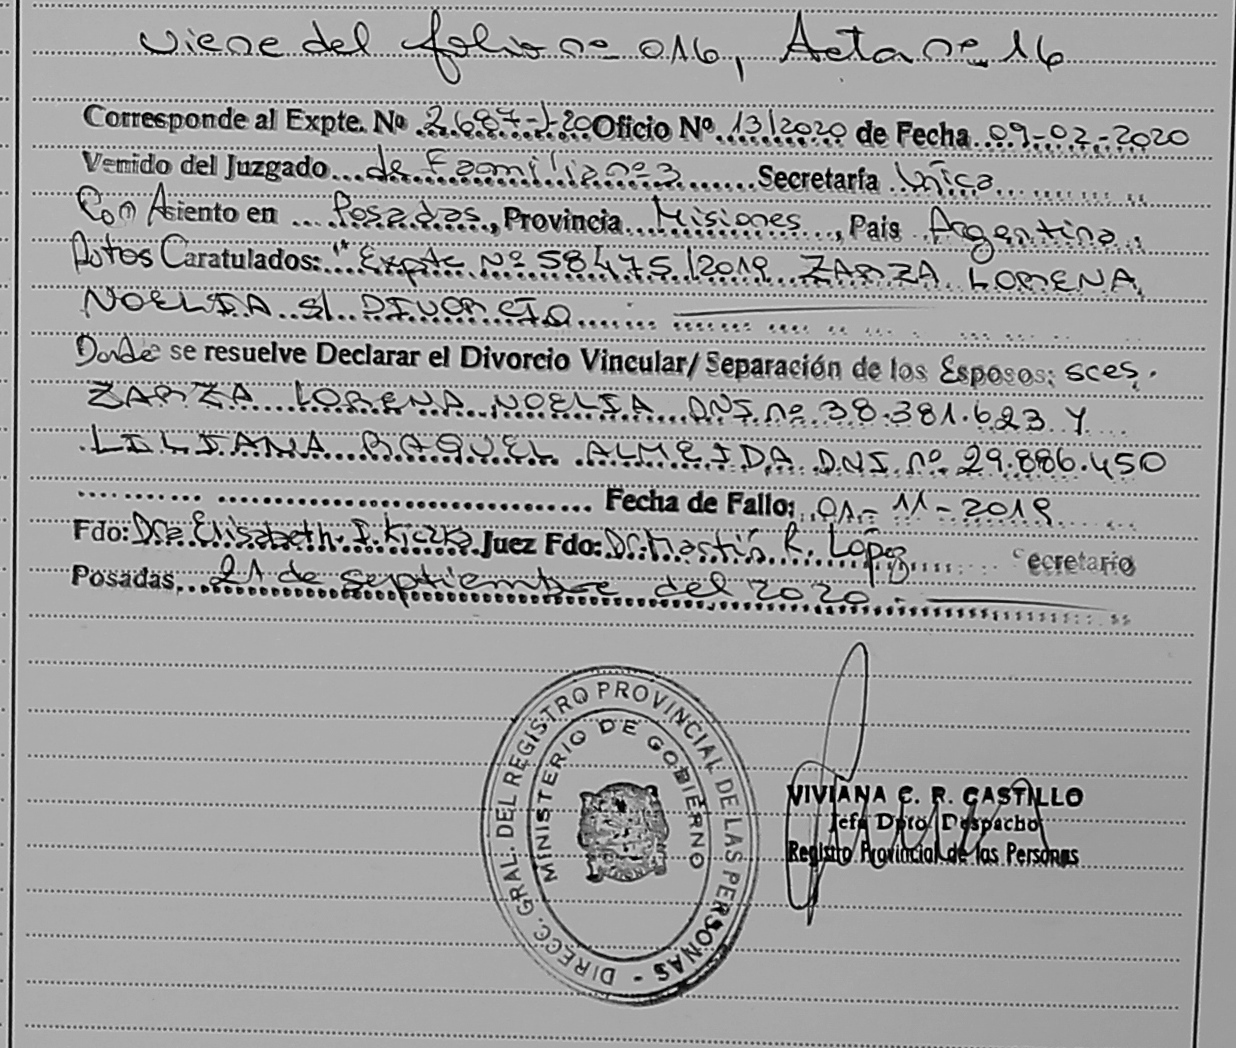 viene del folio nº 016, Acta nº 16
Corresponde al Expte. Nº 2.687-J-20 Oficio Nº 13/2020 de Fecha 09-02-2020
Venido del Juzgado de Familia nº 3 Secretaría Única
Con Asiento en Posadas, Provincia Misiones, Pais Argentina.
Autos Caratulados: "Expte Nº 58475/2019 ZARZA LORENA
NOELIA s/ DIVORCIO
Donde se resuelve Declarar el Divorcio Vincular/ Separación de los Esposos: sres.
ZARZA LORENA NOELIA DNI nº 38.381.623 Y
LILIANA RAQUEL ALMEIDA DNI nº 29.886.450
Fecha de Fallo: 01-11-2019
Fdo: Dra Elisabeth. I. Kiczka Juez Fdo: Dr. Martín R. López ecretario
Posadas, 21 de septiembre del 2020.-
DIRECC. GRAL. DEL REGISTRO PROVINCIAL DE LAS PERSONAS -
MINISTERIO DE GOBIERNO
VIVIANA C. R. CASTILLO
Jefa Dpto. Despacho
Registro Provincial de las Personas